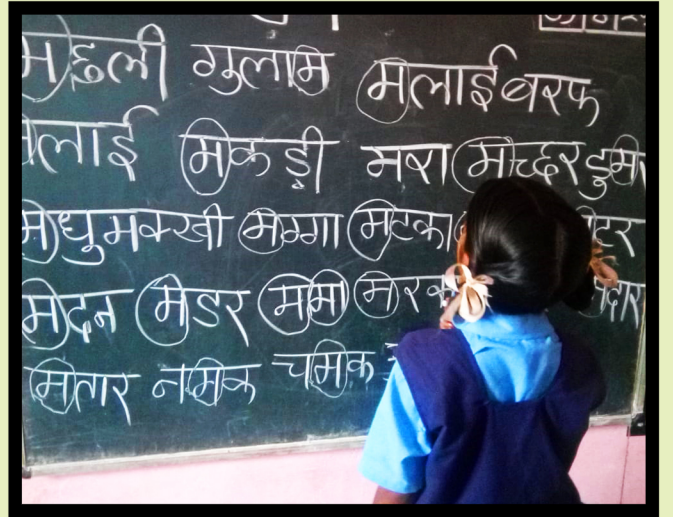 मछली गुलाम मलाईबरफ
मलाई मकड़ी मषा मच्छर डुम
मधुमक्खी मग्गा मटका टर
मदन मडर ममा मर दार
मतार नमक चमक